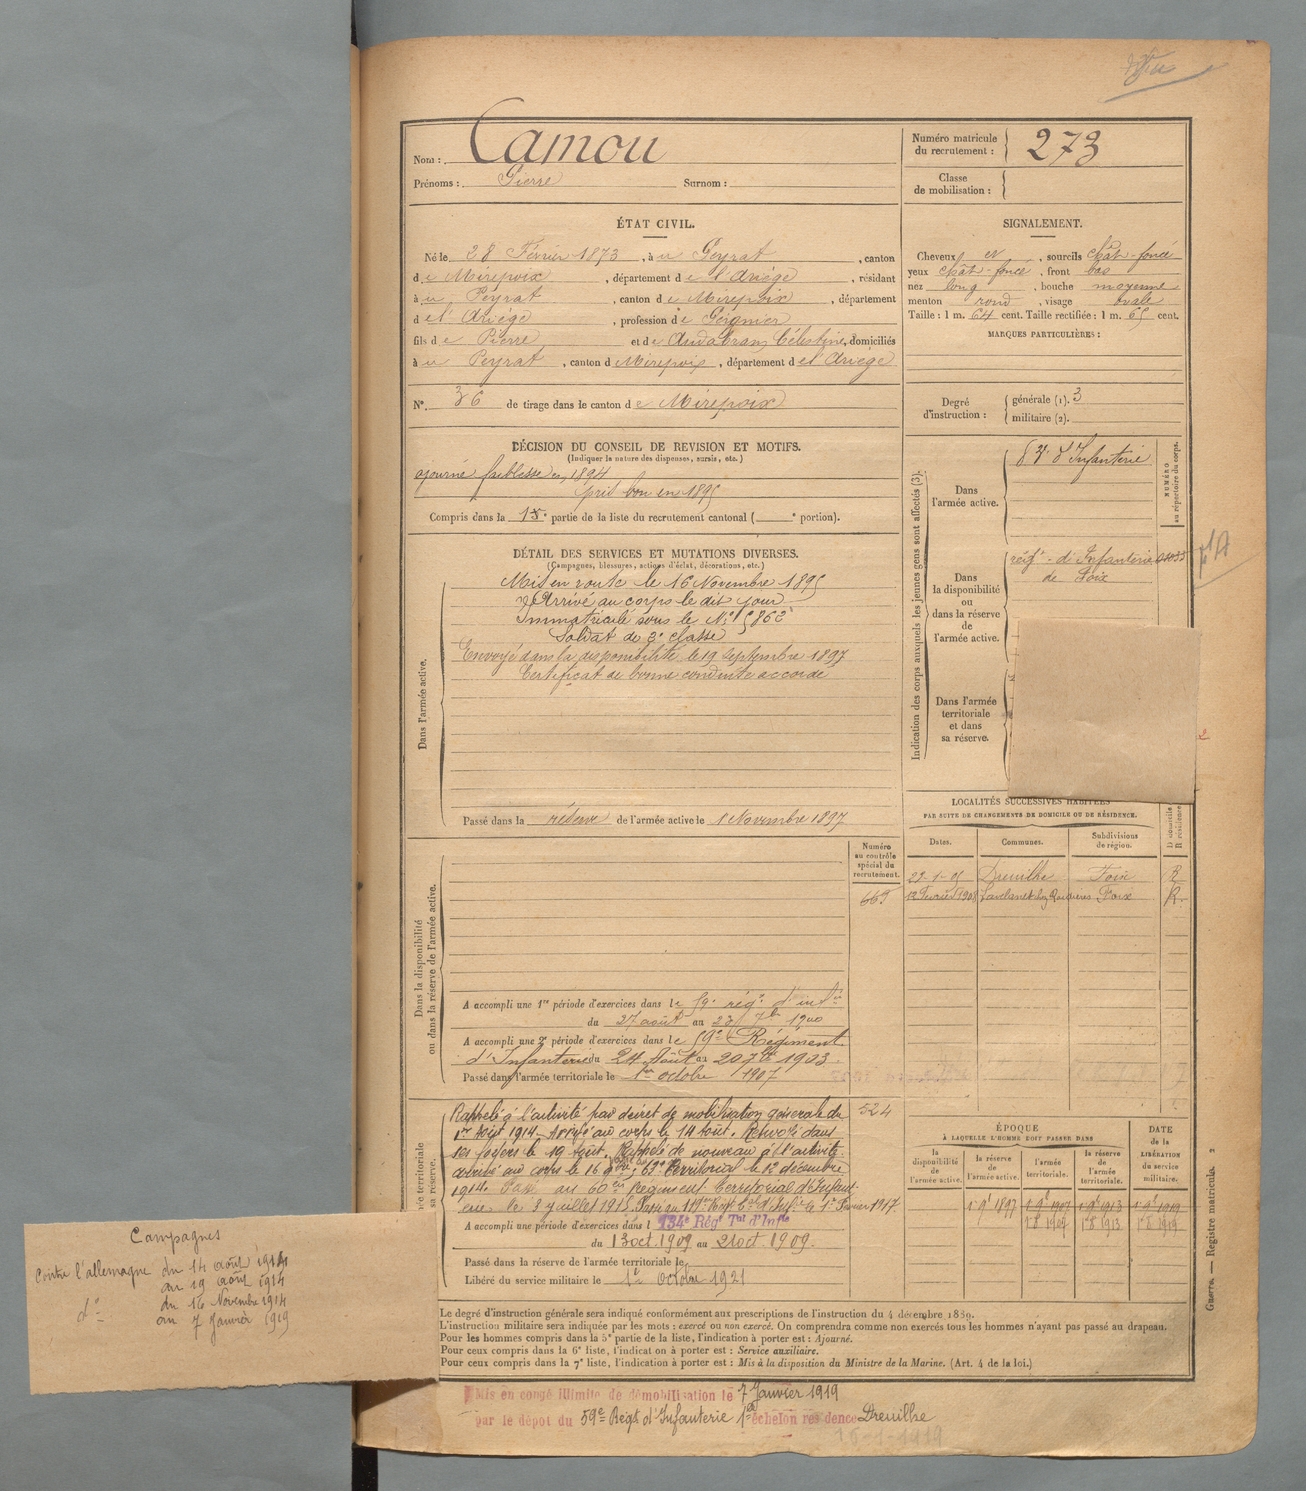 Nom : Camou
Prénoms : Pierre Surnom :
Numéro matricule du recrutement : 273
Classe de mobilisation :
ÉTAT CIVIL.
Né le 28 Février 1873, à u Peyrat, canton
de Mirepoix, département de l'Ariège, résidant
à u Peyrat, canton de Mirepoix, département
de l'Ariège, profession de Peignier
fils de Pierre et de Célestine, domiciliés
à u Peyrat, canton d Mirepoix, département de l'Ariège
N° 36 de tirage dans le canton de Mirepoix
SIGNALEMENT.
Cheveux et, sourcils chât-foncé
yeux chât-foncé, front bas
nez long, bouche moyenne
menton rond, visage ovale
Taille : 1 m. 64 cent. Taille rectifiée : 1 m. 65 cent.
MARQUES PARTICULIÈRES :
Degré d'instruction : générale (1). 3
militaire (2).
DÉCISION DU CONSEIL DE REVISION ET MOTIFS.
(Indiquer la nature des dispenses, sursis, etc.)
ajourné faiblesse en 1894
pris bon en 1895
Compris dans la partie de la liste du recrutement cantonal ( e portion).
DÉTAIL DES SERVICES ET MUTATIONS DIVERSES.
(Campagnes, blessures, actions d'éclat, décorations, etc.)
Dans l'armée active.
Mis en route le 16 Novembre 1895
Arrivé au corps le dit jour
Immatriculé sous le N°
Soldat de 2e classe
Envoyé dans la disponibilité le 19 Septembre 1897
Certificat de bonne conduite accordé
Passé dans la réserve de l'armée active le 1 Novembre 1897
Indication des corps auxquels les jeunes gens sont affectés (3).
Dans l'armée active.
d'Infanterie
NUMÉRO au répertoire du corps.
Dans la disponibilité ou dans la réserve de l'armée active.
régt d'Infanterie
de Foix
Dans l'armée territoriale et dans sa réserve.
LOCALITÉS SUCCESSIVES HABITÉES
PAR SUITE DE CHANGEMENTS DE DOMICILE OU DE RÉSIDENCE.
Dates. Communes. Subdivisions de région.
Dreuilhe Foix R
12 Février 1908 Lavelanet Foix R.
Dans la disponibilité ou dans la réserve de l'armée active.
Numéro au contrôle spécial du recrutement.
665
A accompli une 1re période d'exercices dans le 59e régt d'infie
du 27 août au 23 7bre 1900
A accompli une 2e période d'exercices dans le 59e Régiment
d'Infanterie du 24 Août au 20 7bre 1903.
Passé dans l'armée territoriale le 1er octobre 1907
524
Rappelé à l'activité par décret de mobilisation générale du
1er Août 1914. Arrivé au corps le 14 Août. Renvoyé dans
ses foyers le 19 Août. Rappelé de nouveau à l'activité.
arrivé au corps le 16 9bre; Territorial le 12 décembre
1914. Passé au 60e Régiment Territorial d'Infant-
erie le 8 juillet 1915.
A accompli une période d'exercices dans l 134e Régt Tal d'Infie
du 13 oct. 1909 au 21 oct. 1909.
Passé dans la réserve de l'armée territoriale le
Libéré du service militaire le 1er octobre 1921
ÉPOQUE
À LAQUELLE L'HOMME DOIT PASSER DANS
la disponibilité de l'armée active.
la réserve de l'armée active.
l'armée territoriale.
la réserve de l'armée territoriale.
DATE de la LIBÉRATION du service militaire.
Le degré d'instruction générale sera indiqué conformément aux prescriptions de l'instruction du 4 décembre 1889.
L'instruction militaire sera indiquée par les mots : exercé ou non exercé. On comprendra comme non exercés tous les hommes n'ayant pas passé au drapeau.
Pour les hommes compris dans la 5e partie de la liste, l'indication à porter est : Ajourné.
Pour ceux compris dans la 6e liste, l'indication à porter est : Service auxiliaire.
Pour ceux compris dans la 7e liste, l'indication à porter est : Mis à la disposition du Ministre de la Marine. (Art. 4 de la loi.)
Guerre. — Registre matricule. 2
Mis en congé illimité de démobilisation le 7 Janvier 1919
par le dépot du 59e Régt d'Infanterie 1er échelon résidence Dreuilhe
Campagnes
Contre l'allemagne du 14 août 1914
au 19 août 1914
do du 16 Novembre 1914
au 7 Janvier 1919